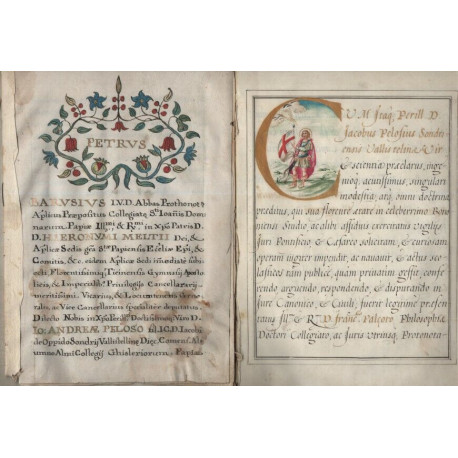 PETRVS
BARVSIVS I.V.D. Abbas Prothonot.
Aplicus Præpositus Collegiatæ Sti. Ioānis Dom
narum Papiæ Illmi. & Rmi. in Xpō Patris D.
D. HIERONYMI MELTII Dei, &
Aplicæ Sedis gra Stæ. Papiensis Ecclīæ Epi, &
Comitis, & c. eidem Aplicæ Sedi imēdiatè subi
ecti Florentissimi Ticinensis Gymnasij Aposto
licis, & Imperialib. Privilegijs Cancellarij
meritissimi Vicarius, & Locumtenens Gene
ralis, ac Cancellarius specialiter deputatus
Dilecto Nobis in Xpō
IO. ANDREÆ PELOSO fil. I.C.D. Iacobi
de Oppido Sondrij Vallistellinæ Diœc. Comens. Al
umno Almi Collegij Ghisleriorum Papiæ
CVM Itaq. Perill. D.
Jacobus Pelosius Sondri
ensis Vallis telinæ Vir
scientia præclarus, inge
nioq. acutissimus, singulari
modestia, atq. omni doctrina
præditus, qui sua florente ætate in celeberrimo Bono
niensi Studio, ac alibi assiduis exercitatus vigilijs
Juri Pontificio et Cæsareo solicitam, et curiosam
operam inguit impendere, et adhibere, ac actus scho
lasticos tam publicè, quam privatim gessit, confe
rendo arguendo, respondendo, et disputando in
Jure Canonico, et Civili, fuerit legitime præsen
tatus Ill. et R. D. Franc. Paleoto Philosophiæ
Doctori Collegiato, ac Juris Utriusq. Protonota